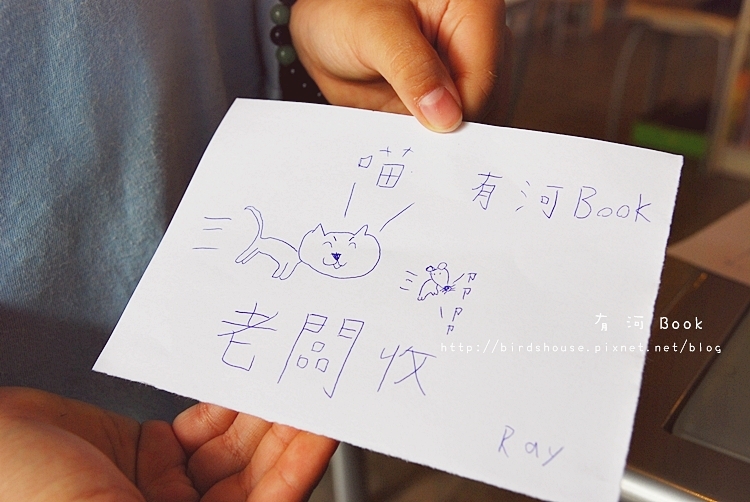 喵
有河Book
三
三
ㄗㄗ
ㄗㄗ
老闆收
Ray
有河 Book
http://birdshouse.pixnet.net/blog